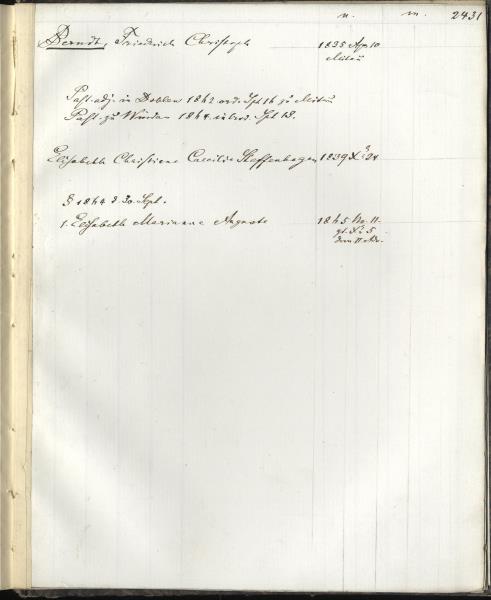 n. m. 2431
Berndt, Friedrich Christoph 1835 Apr 10
Mitau
Past. adj. in Doblen 1862 ord. Spt 16 zu Mitau
Past. zu Würzau 1864 introd. Spt 13.
Elisabeth Christiane Caecilie Steffenhagen 1839 X 24
1864 d 30 Sept.
1. Elisabeth Marianne Auguste 1865 No. 11.
gt. X 5